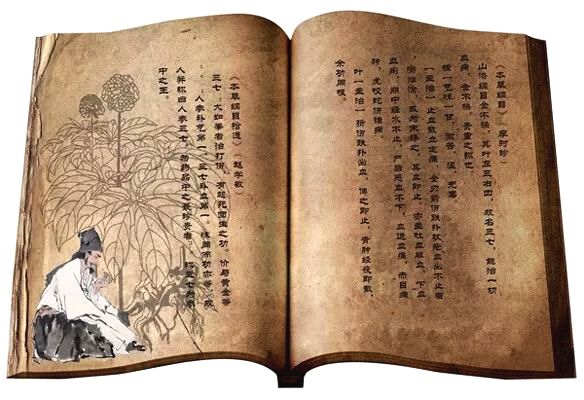 《本草纲目》 李时珍
山漆纲目金不换，其叶左三右四，故名三七，能治一切
血病，金不换，贵重之称也
根 气味 甘，微苦，温，无毒
主治 止血散血定痛，金刃箭伤跌扑杖疮血出不止者
嚼烂涂，或为末掺之，其血即止，亦主吐血衄血，下血
血痢，崩中经水不止，产后恶血不下，血运血痛，赤目痈
肿，虎咬蛇伤诸病
叶 主治 折伤跌扑出血，傅之即止，青肿经夜即散，
余功同根。
《本草纲目拾遗》 赵学敏
三七：大如拳者治打伤，有起死回生之功，价与黄金等
：：人参补气第一，三七补血第一，味同而功亦等，故
人并称曰人参三七，为药品中之最珍贵者，称三七为药
中之王。